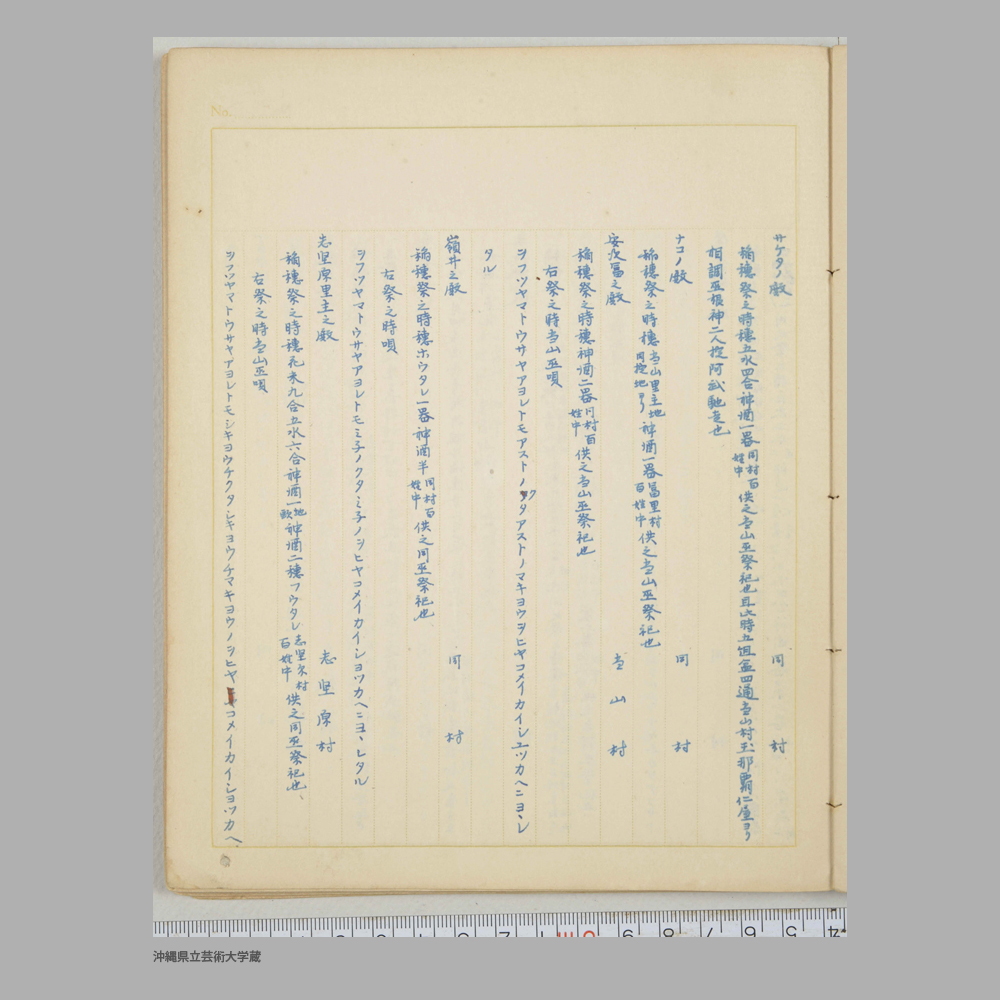 サケタノ殿　同　村
稲穂祭之時穂五水四合神酒一器同村百姓中供之当山巫祭祀也且此時五組盆四通当山村玉那覇仁屋ヨリ
相調巫根神二人掟阿武馳走也
ナコノ殿　同　村
稲穂祭之時穂当山里主地同掟地ヨリ神酒一器冨里村百姓中供之当山巫祭祀也
安次冨之殿　当　山　村
稲穂祭之時穂神酒二器同村百姓中供之当山巫祭祀也
右祭之時当山巫唄
シフツヤマトウサヤアヨレトモアストノ タアストノマキヨウヲヒヤコメイカイシユツカヘニヨヽレ
タル
嶺井之殿　同　村
稲穂祭之時穂ホウタレ一器神酒半同村百姓中供之同巫祭祀也
右祭之時唄
シフツヤマトウサヤアヨレトモミチノクタミチノヲヒヤコメイカイシヨツカヘニヨヽレタル
志堅原里主之殿　志　堅　原　村
稲穂祭之時穂花米九合五水六合神酒一地頭神酒二穂フウタレ志堅原村百姓中供之同巫祭祀也、
右祭之時当山巫唄
シフツヤマトウサヤアヨレトモシキヨウチクタシキヨウチマキヨウノヲヒヤコメイカイシヨツカヘ
No.
沖縄県立芸術大学蔵